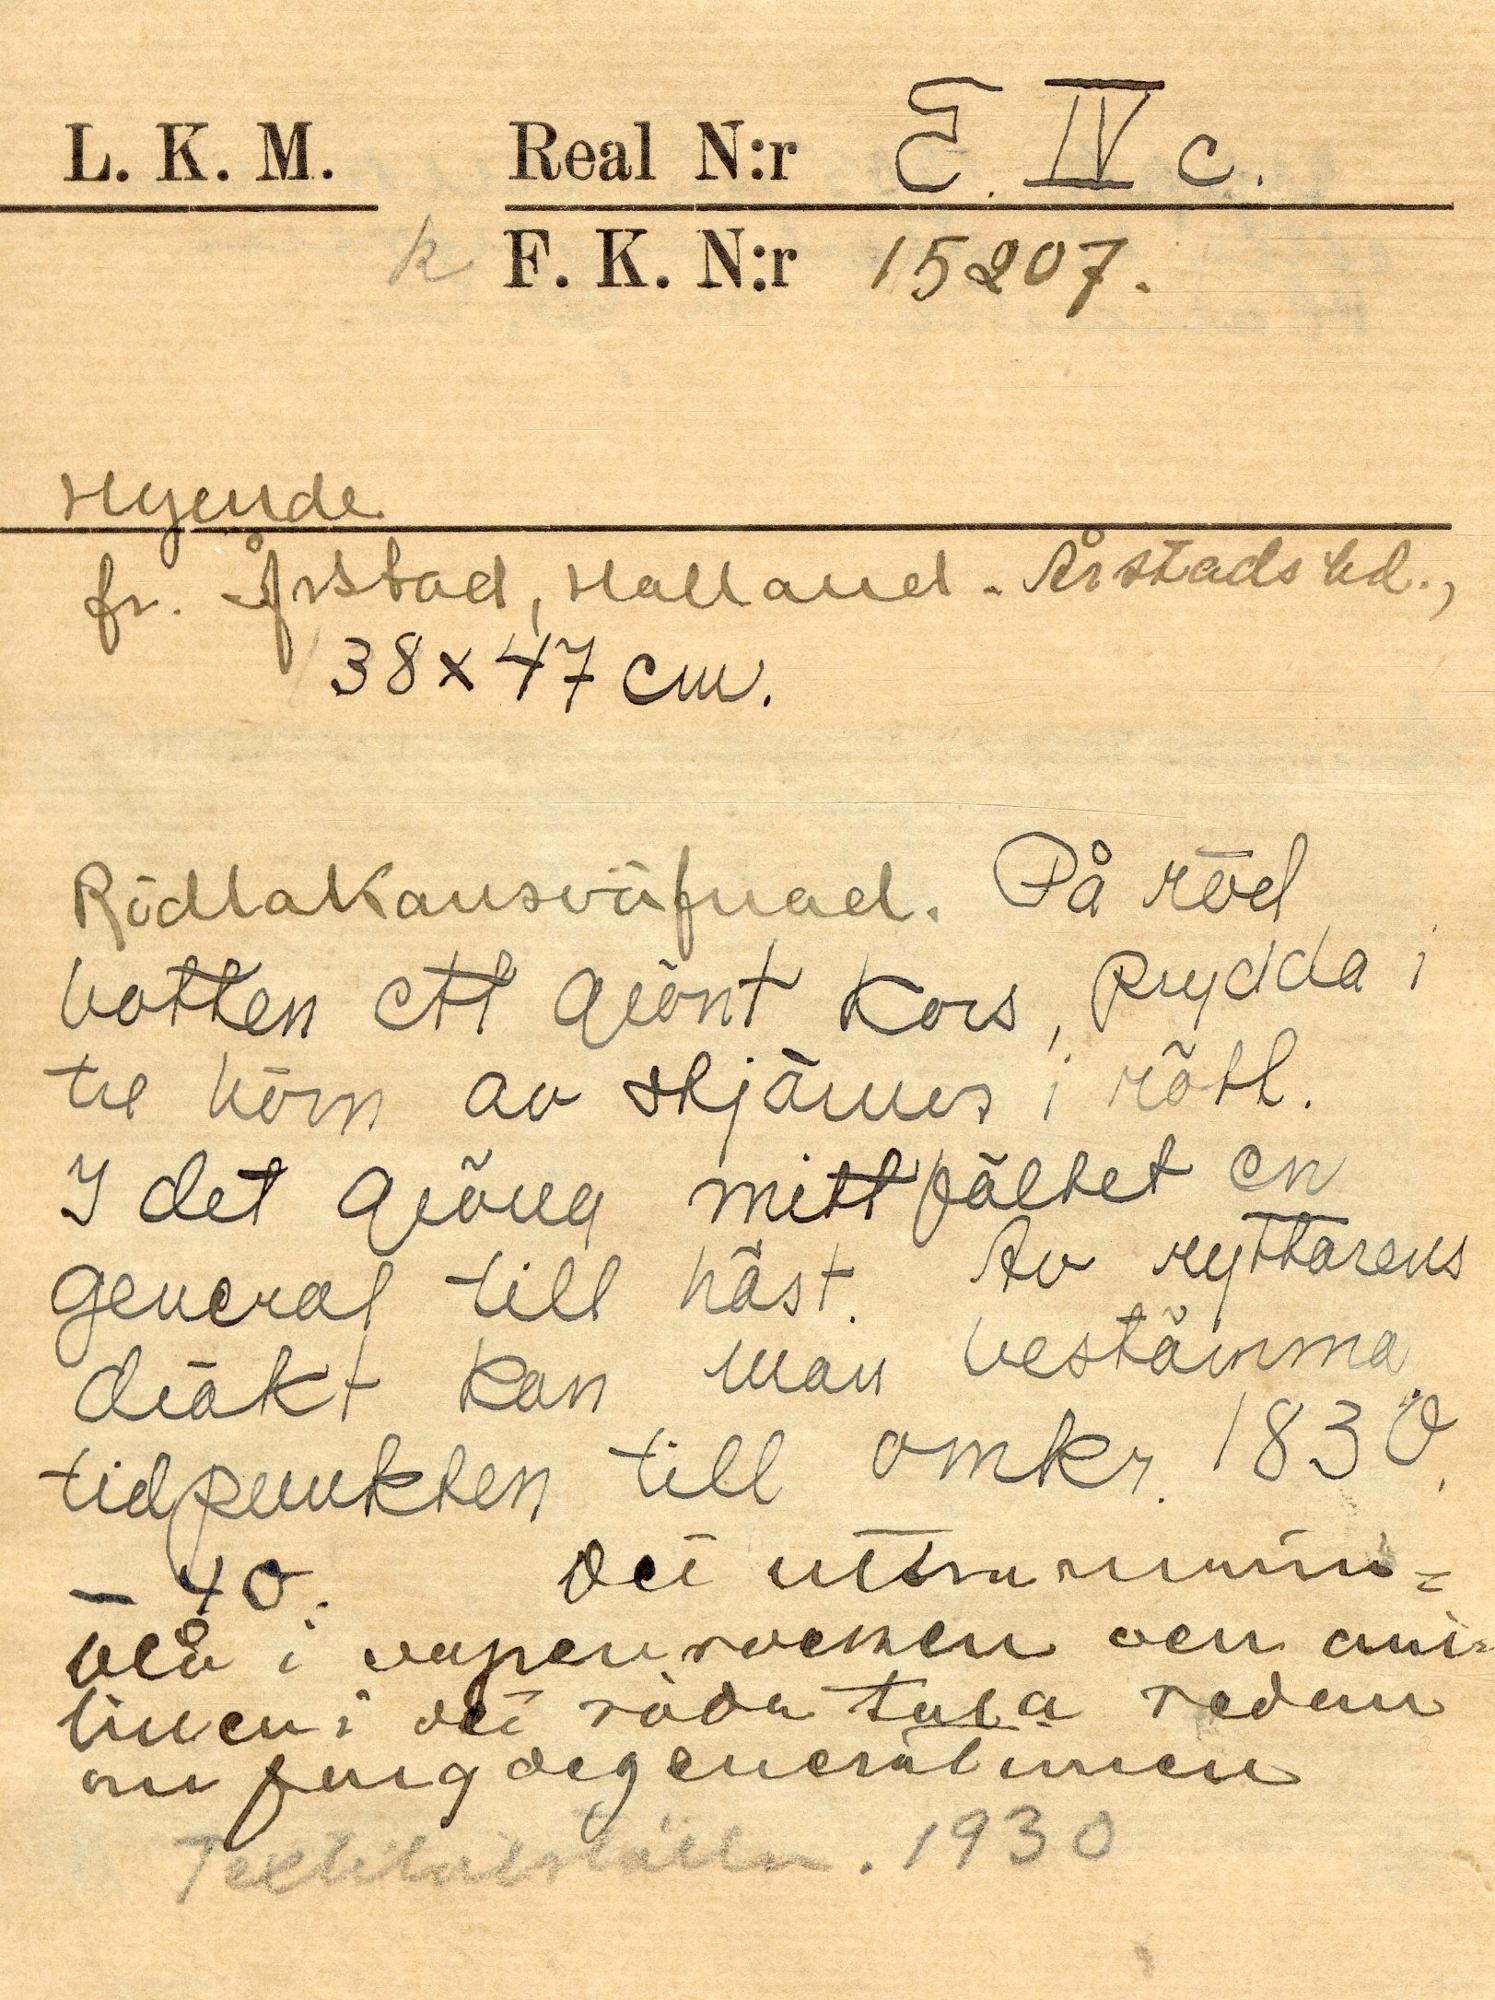 L. K. M. Real N:r E. IV c.
k F. K. N:r 15207.
Hyende
fr. Årstad, Halland. Årstads hd.,
38 x 47 cm.
Rödlakansväfnad. På röd
botten ett grönt kors, prydda i
tre hörn av stjärnor i rött.
I det gröna mittfältet en
general till häst. Av ryttarens
dräkt kan man bestämma
tidpunkten till omkr. 1830
– 40. Det ultramarin=
blå i vapenrocken och ani-
linen i det röda tala redan
om färgdegenerationen
Textilutställn. 1930